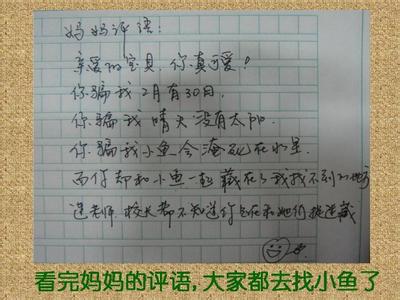 妈妈评语:
亲爱的宝贝,你真可爱!
你骗我2月有30日,
你骗我晴天没有太阳.
你骗我小鱼会淹死在水里
而你却和小鱼一起藏在了我找不到的地方
连老师、校长都不知道你在和她们捉迷藏
看完妈妈的评语,大家都去找小鱼了